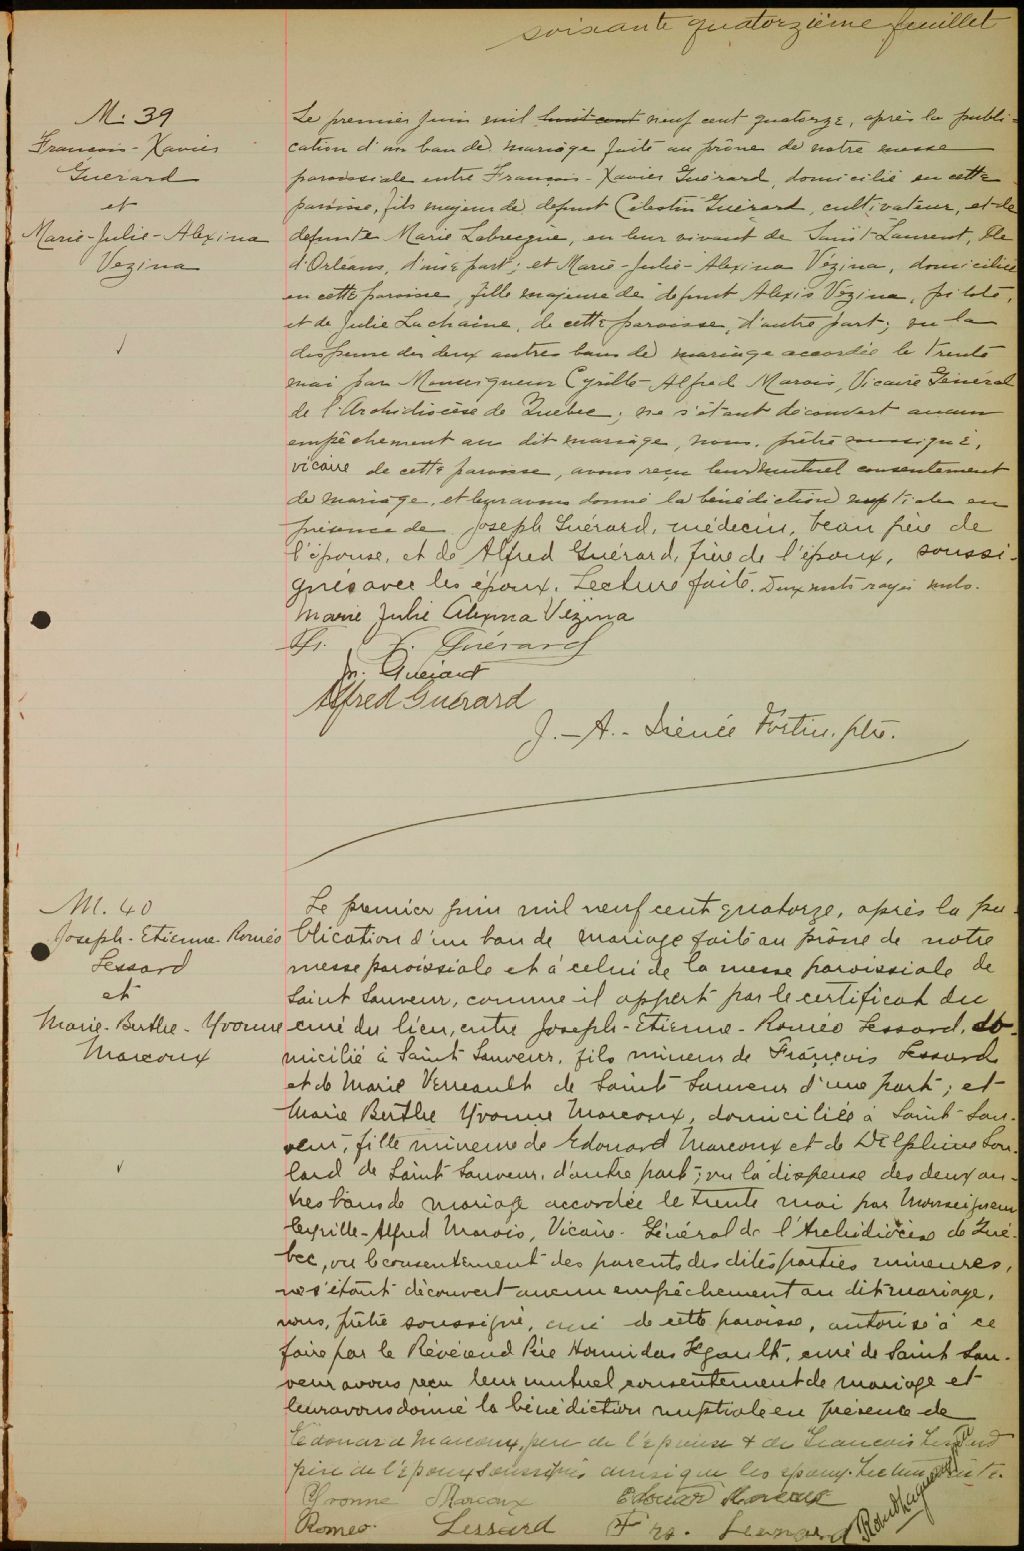 soixante quatorzième feuillet
M. 39
François-Xavier
Guérard
et
Marie-Julie-Alexina
Vézina
Le premier juin mil huit cent neuf cent quatorze, après la publi-
cation d'un ban de mariage faite au prône de notre messe
paroissiale entre François-Xavier Guérard, domicilié en cette
paroisse, fils majeur de défunt Célestin Guérard, cultivateur, et de
défunte Marie Labrecque, en leur vivant de Saint-Laurent, Ile
d'Orléans, d'une part; et Marie-Julie-Alexina Vézina, domiciliée
en cette paroisse, fille majeure de défunt Alexis Vézina, pilote,
et de Julie Lachaine, de cette paroisse, d'autre part; vu la
dispense des deux autres bans de mariage accordée le trente
mai par Monseigneur Cyrille-Alfred Marois, Vicaire Général
de l'Archidiocèse de Québec; ne s'étant découvert aucun
empêchement au dit mariage, nous, prêtre soussigné,
vicaire de cette paroisse, avons reçu leur mutuel consentement
de mariage, et leur avons donné la bénédiction nuptiale en
présence de Joseph Guérard, médecin, beau frère de
l'épouse, et de Alfred Guérard, frère de l'époux, soussi-
gnés avec les époux. Lecture faite. Deux mots rayés nuls.
Marie Julie Alexina Vézina
Fr. X. Guérard
J. Guérard
Alfred Guérard
J.-A.-Irénée Fortin, ptre.
M. 40
Joseph-Etienne-Roméo
Lessard
et
Marie-Berthe-Yvonne
Marcoux
Le premier juin mil neuf cent quatorze, après la pu-
blication d'un ban de mariage faite au prône de notre
messe paroissiale et à celui de la messe paroissiale de
Saint Sauveur, comme il appert par le certificat du
curé du lieu, entre Joseph-Etienne-Roméo Lessard, do-
micilié à Saint Sauveur, fils mineur de François Lessard
et de Marie Verreault de Saint Sauveur d'une part; et
Marie Berthe Yvonne Marcoux, domiciliée à Saint-Sau-
veur, fille mineure de Edouard Marcoux et de Delphine Sou-
lard de Saint Sauveur, d'autre part; vu la dispense des deux au-
tres bans de mariage accordée le trente mai par Monseigneur
Cyrille-Alfred Marois, Vicaire-Général de l'Archidiocèse de Qué-
bec, vu le consentement des parents des dites parties mineures,
ne s'étant découvert aucun empêchement au dit mariage,
nous, prêtre soussigné, curé de cette paroisse, autorisé à ce
faire par le Révérend Père Hormidas Legault, curé de Saint Sau-
veur avons reçu leur mutuel consentement de mariage et
leur avons donné la bénédiction nuptiale en présence de
Edouard Marcoux, père de l'épouse & de François Lessard
père de l'époux soussignés ainsi que les époux. Lecture faite.
Yvonne Marcoux Edouard Marcoux
Romeo Lessard Frs. Lessard